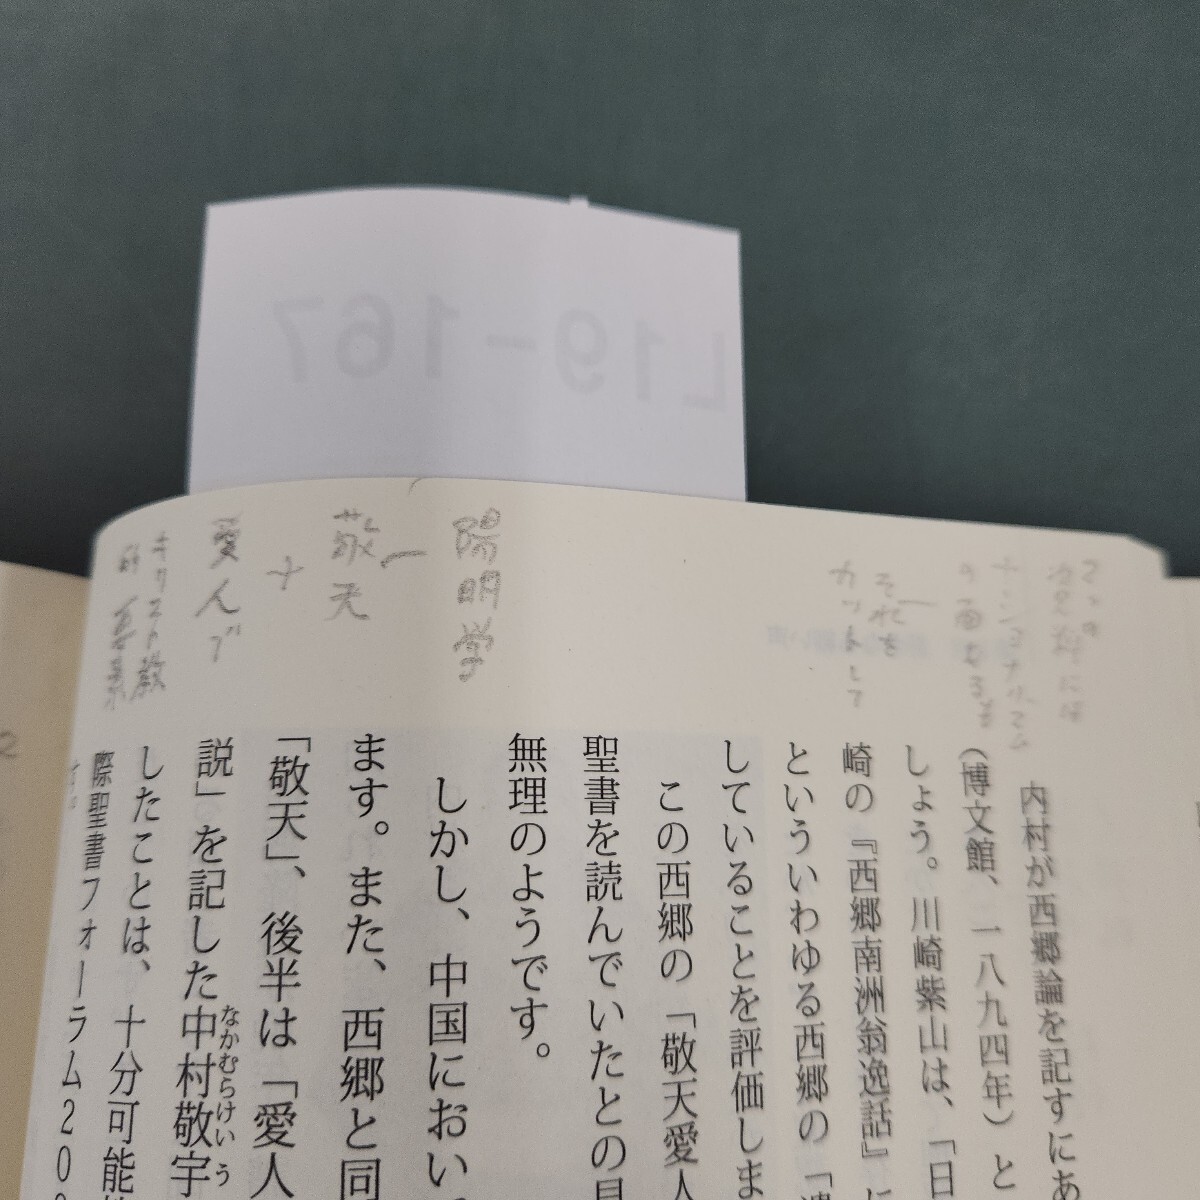 L19-167
それを
カットして
陽明学
敬天
+
愛人で
キリスト教
内村が西郷論を記すにあ
(博文館、一八九四年)と
しょう。川崎紫山は、「日
崎の『西郷南洲翁逸話』に
といういわゆる西郷の「遺
していることを評価しま
この西郷の「敬天愛人
聖書を読んでいたとの見
無理のようです。
しかし、中国におい
ます。また、西郷と同
「敬天」、後半は「愛人
説」を記した中村敬宇
なかむらけいう
したことは、十分可能
際聖書フォーラム20
2